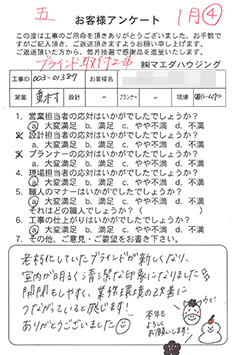 五
お客様アンケート
1月④
この度は工事のご用命を頂きありがとうございました。お手数で
すがご記入頂き、ご返送頂きますようお願い申し上げます。
ご返送頂いた方から、毎月抽選で感謝品を進呈いたします。
ブラインド取付工事
㈱マエダハウジング
工事ID 003-01389 お客様名
営業 設計 - プランナー 現場
1. 営業担当者の応対はいかがでしたでしょうか？
a 大変満足 b. 満足 c. やや不満 d. 不満
2. 設計担当者の応対はいかがでしたでしょうか？
a. 大変満足 b. 満足 c. やや不満 d. 不満
3. プランナーの応対はいかがでしたでしょうか？
a. 大変満足 b. 満足 c. やや不満 d. 不満
4. 現場担当者の応対はいかがでしたでしょうか？
a 大変満足 b. 満足 c. やや不満 d. 不満
5. 職人のマナーはいかがでしたでしょうか？
a 大変満足 b. 満足 c. やや不満 d. 不満
それはどの職人でしょうか？（ ）
6. 工事の仕上がりはいかがでしたでしょうか？
a 大変満足 b. 満足 c. やや不満 d. 不満
7. その他、ご意見・ご要望をお書き下さい。
老朽化していたブラインドが新しくなり、
室内が明るく清潔な印象になりました
開閉もしやすく、業務環境の改善に
つながっていると感じます！
ありがとうございました
本年も
よろしく
お願い
します！